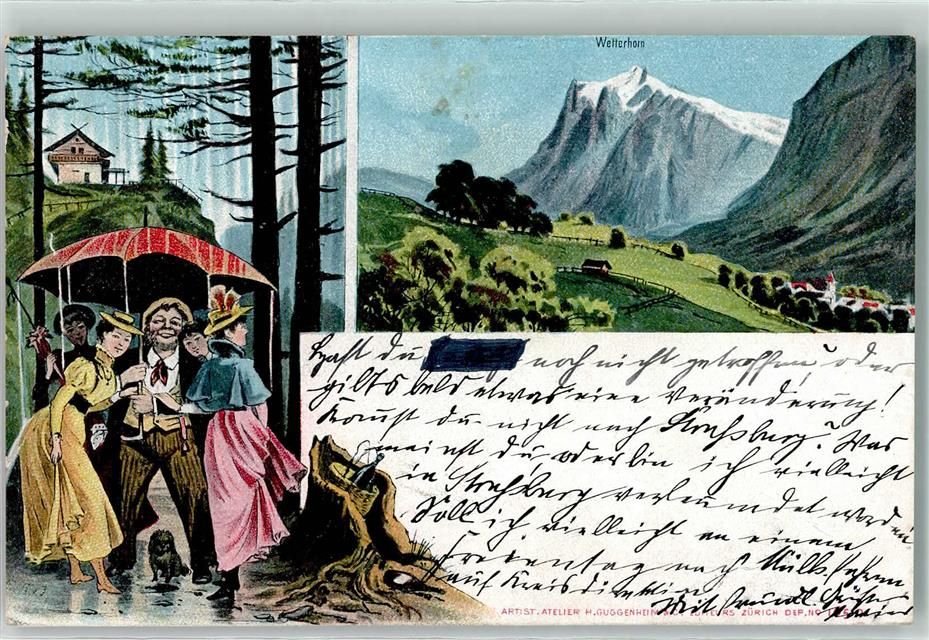 Wetterhorn
Hast du noch nicht getroffen, oder
gilts bald etwas eine Veränderung!
Kommst du nicht nach Straßburg? Was
meinst du, oder bin ich vielleicht
in Straßburg verleumdet worden
Soll ich vielleicht an einem
nach Mülh. fahren
auf Kreisdirektion
ARTIST. ATELIER H. GUGGENHEIM ZÜRICH DEP. No